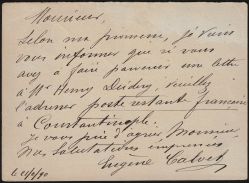 Monsieur,
Selon ma promesse, je viens
vous informer que si vous
avez à faire parvenir une lettre
à Mr Henry Deidry, veuillez
l'adresser poste restante française
à Constantinople.
Je vous prie d'agréer Monsieur
mes salutations empressées
Eugène Calvet
le 21/9/90